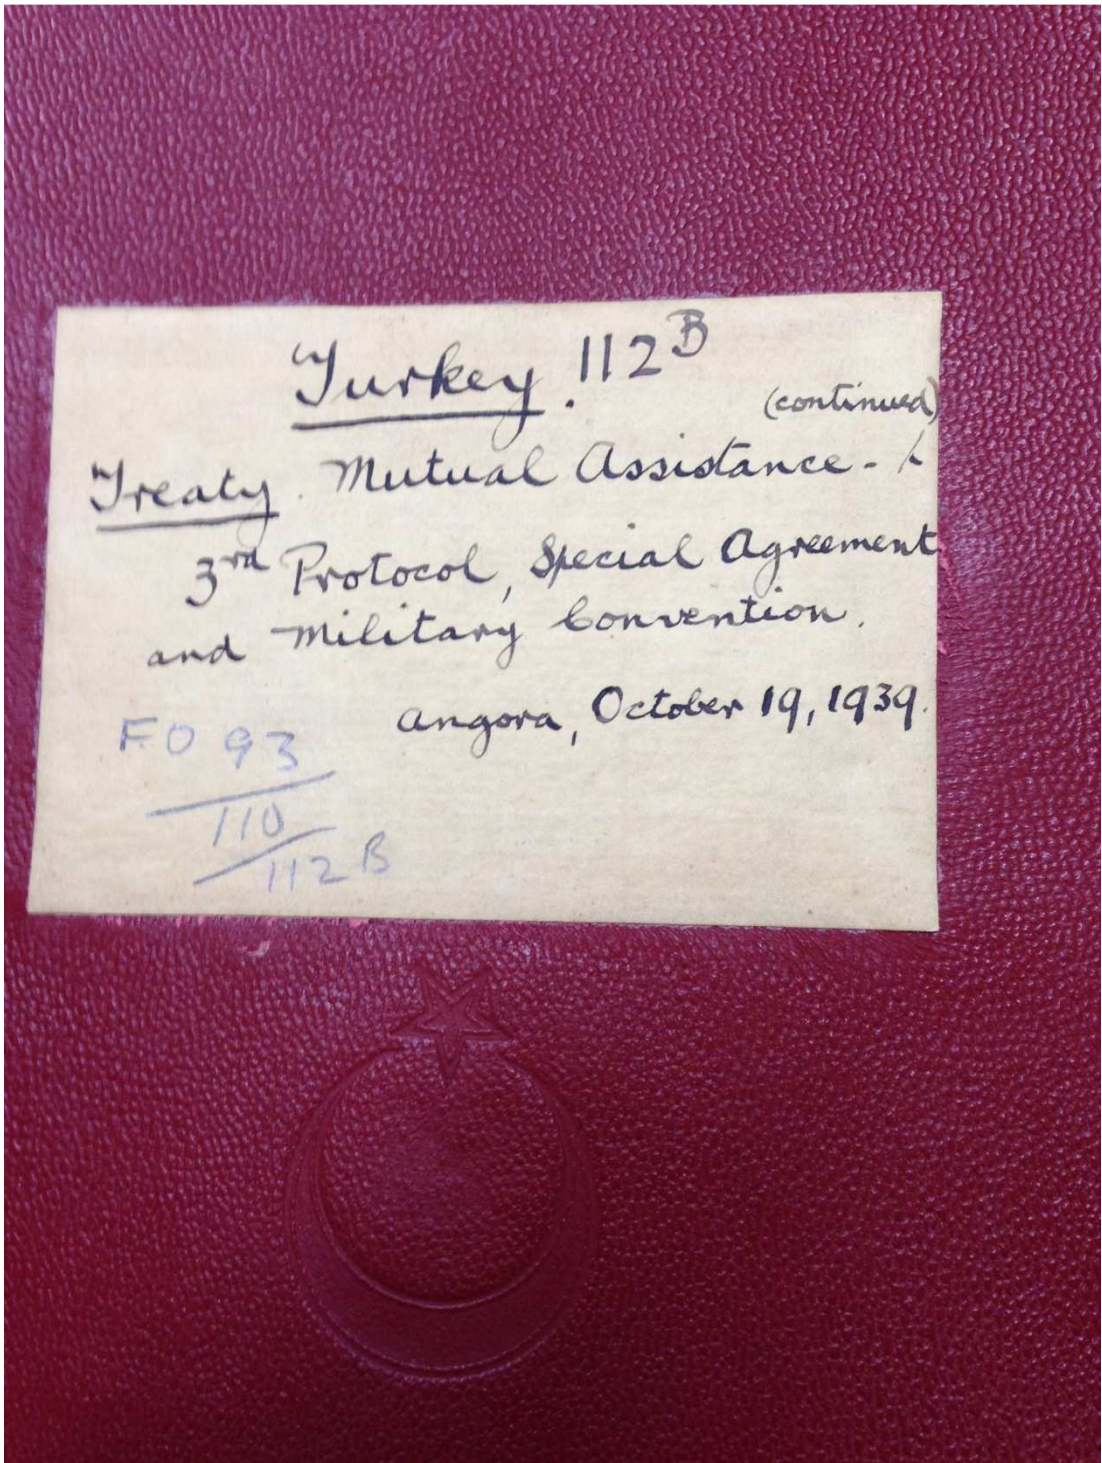 Turkey. 112B
(continued)
Treaty. Mutual Assistance -
3rd Protocol, Special Agreement
and Military Convention.
Angora, October 19, 1939.
FO 93
110
112 B